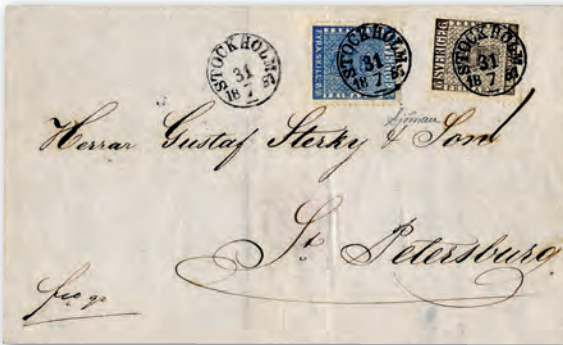 STOCKHOLM
31
18 7 57
FYRA SKILL. B
STOCKHOLM
31
18 7 57
SVERIGE
STOCKHOLM
31
18 7 57
Herrar Gustaf Sterky & Son
St Petersburg
fco gr